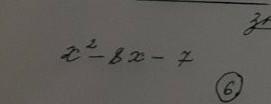 x² - 8x - 7
6